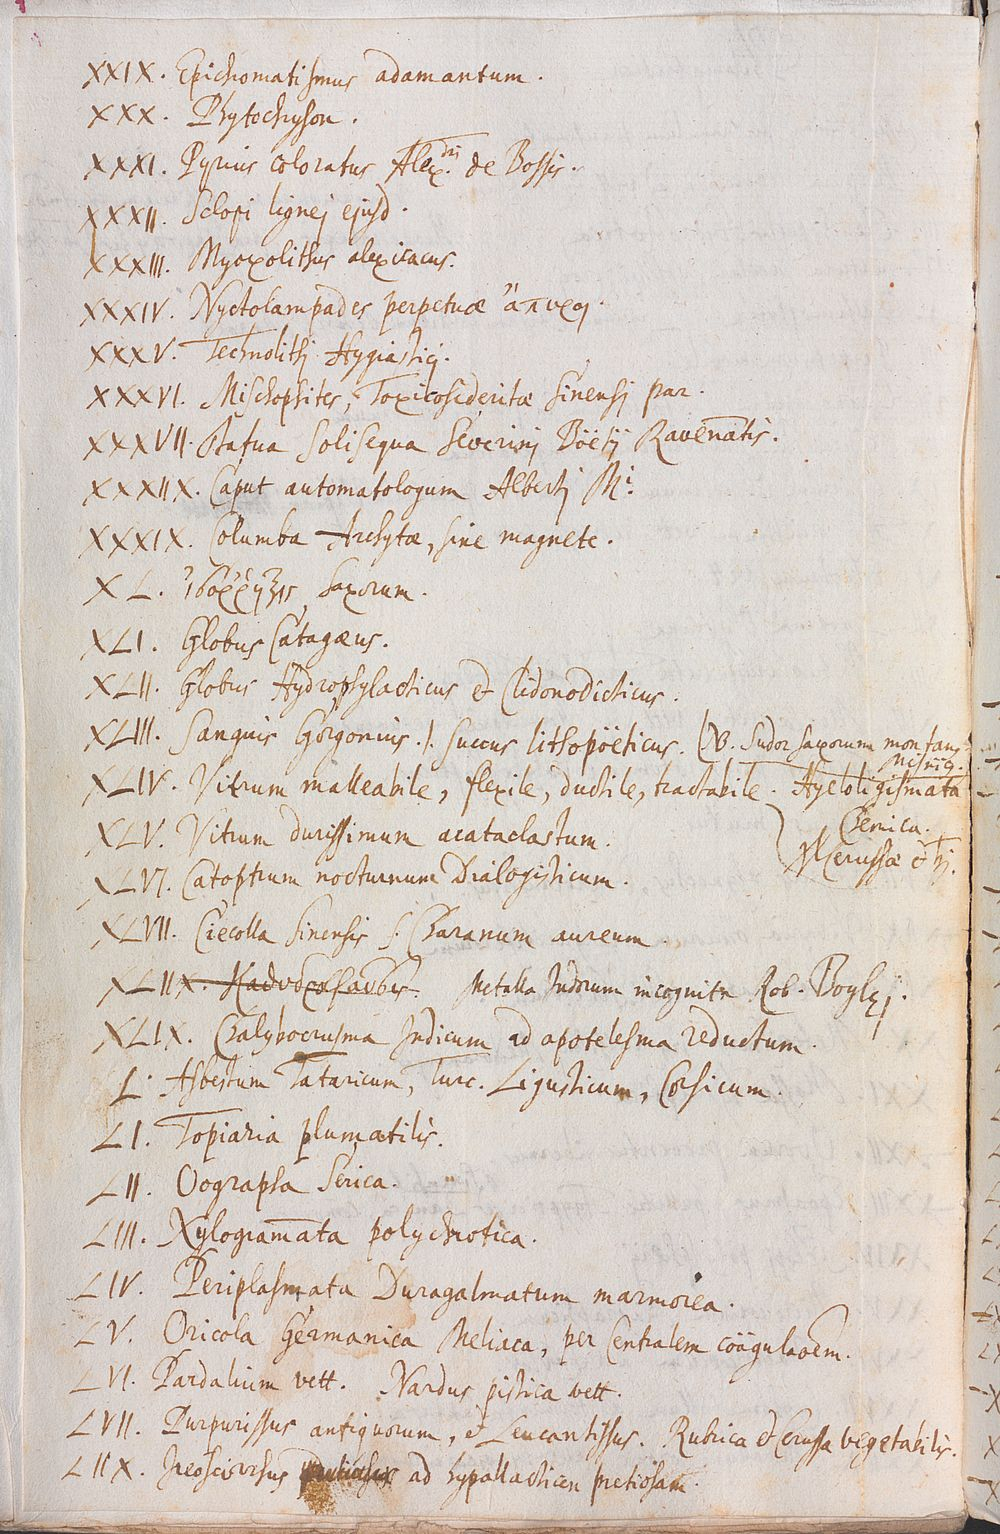 XXIX. Epichomatismus adamantum.
XXX. Phytochyson.
XXXI. Pyrius coloratus Alex.dri de Bossis.
XXXII. Sclopi lignej ejusd.
XXXIII. Myoxolithus alexicacus.
XXXIV. Nyctolampades perpetuæ
XXXV. Technolithj Hygiasticj.
XXXVI. Mischopsites, Toxicosideritæ Sinensij par.
XXXVII. Statua Solisequa Severinj Böetij Ravenatis.
XXXIIX. Caput automatologum Albertj M.i
XXXIX. Columba Archytæ, sine magnete.
XL. saxorum.
XLI. Globus Catagæus.
XLII. Globus Hydrophylacticus & Clidonodicticus.
XLIII. Sanguis Gorgonius. s. succus lithopöeticus. (NB. Sudor saxorum montans
XLIV. Vitrum malleabile, flexile, ductile, tractabile. Hyeloligismata
Chemica.
XLV. Vitrum durissimum acataclastum.
Cerussæ &
XLVI. Catoptrum nocturnum Dialogisticum.
XLVII. Ciecolla Sinensis s. Charanum aureum.
XLIIX. Metalla Indorum incognita Rob. Boylej.
XLIX. Chalybocrusma Indicum ad apotelesma reductum.
L. Asbestum Tataricum, Turc. Ligusticum, Corsicum.
LI. Topiaria plumatilis.
LII. Oographa Serica.
LIII. Xylogramata polychrotica.
LIV. Periplasmata Duragalmatum marmorea.
LV. Oricola Germanica Meliaca, per Centralem cöagulaõem.
LVI. Pardalium vett. Nardus pistica vett.
LVII. Purpurissus antiquorum, & Leucantissus. Rubrica & Cerussa vegetabilis.
LIIX. ad hypallacticen pretiosam.